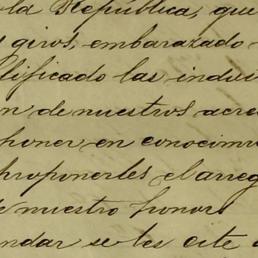 la República, que
giros, embarazado
lificado las indivi
n de nuestros acre
poner en conocimi
proponerles el arreg
e nuestro honor
ndar se les cite a